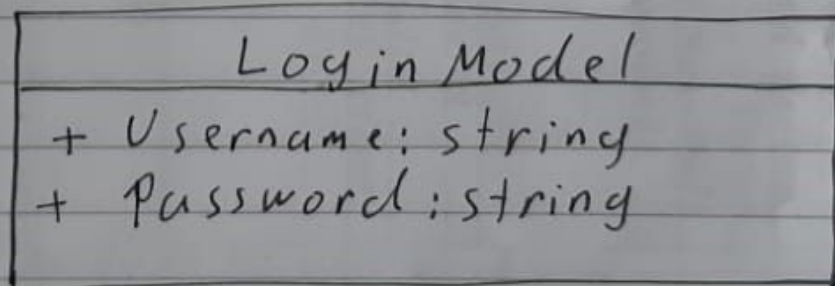 Login Model
+ Username: string
+ Password: string